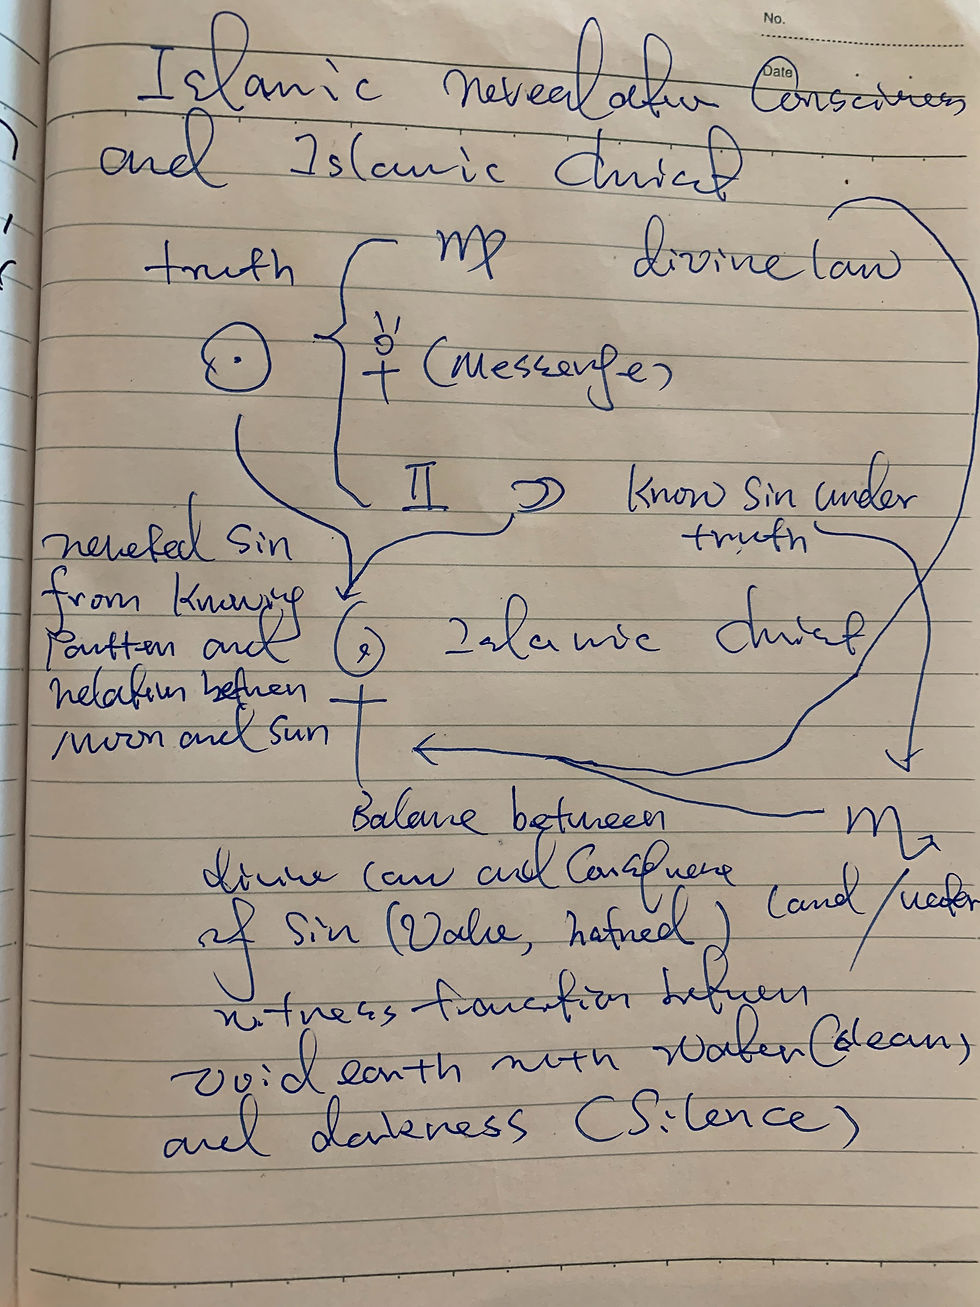 No.
Date
Islamic revelation Consciousness
and Islamic christ
truth
divine law
(Messenger)
Know Sin under
truth
Sin
from knowing
Pattern and
relation between
Moon and Sun
Islamic christ
Balance between
divine law and Consequence
of Sin (Value, hatred)
land / water
witness transition between
void earth with water (clean)
and darkness (Silence)